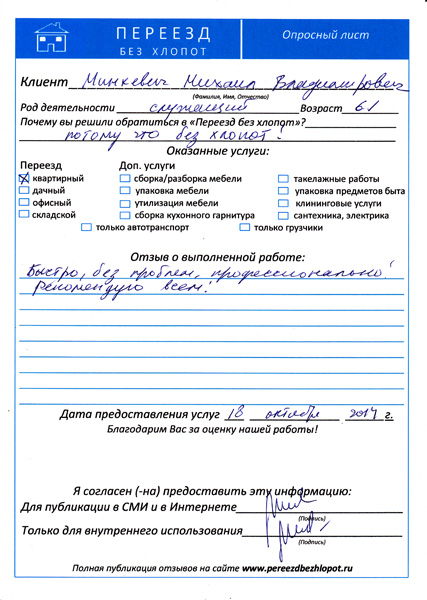 ПЕРЕЕЗД
БЕЗ ХЛОПОТ
Опросный лист
Клиент Минкевич Михаил Владимирович
(Фамилия, Имя, Отчество)
Род деятельности служащий Возраст 61
Почему вы решили обратиться в «Переезд без хлопот»?
потому что без хлопот!
Оказанные услуги:
Переезд Доп. услуги
квартирный сборка/разборка мебели такелажные работы
дачный упаковка мебели упаковка предметов быта
офисный утилизация мебели клининговые услуги
складской сборка кухонного гарнитура сантехника, электрика
только автотранспорт только грузчики
Отзыв о выполненной работе:
Быстро, без проблем, профессионально!
Рекомендую всем!
Дата предоставления услуг 18 октября 2014 г.
Благодарим Вас за оценку нашей работы!
Я согласен (-на) предоставить эту информацию:
Для публикации в СМИ и в Интернете
(Подпись)
Только для внутреннего использования
(Подпись)
Полная публикация отзывов на сайте www.pereezdbezhlopot.ru